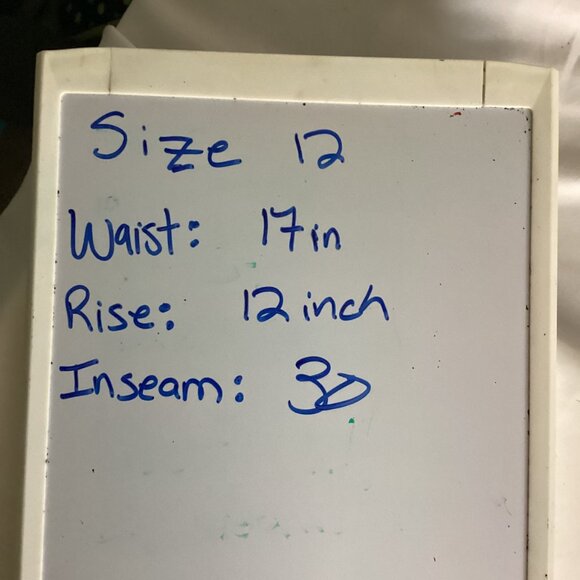 Size 12
Waist: 17in
Rise: 12 inch
Inseam: 30